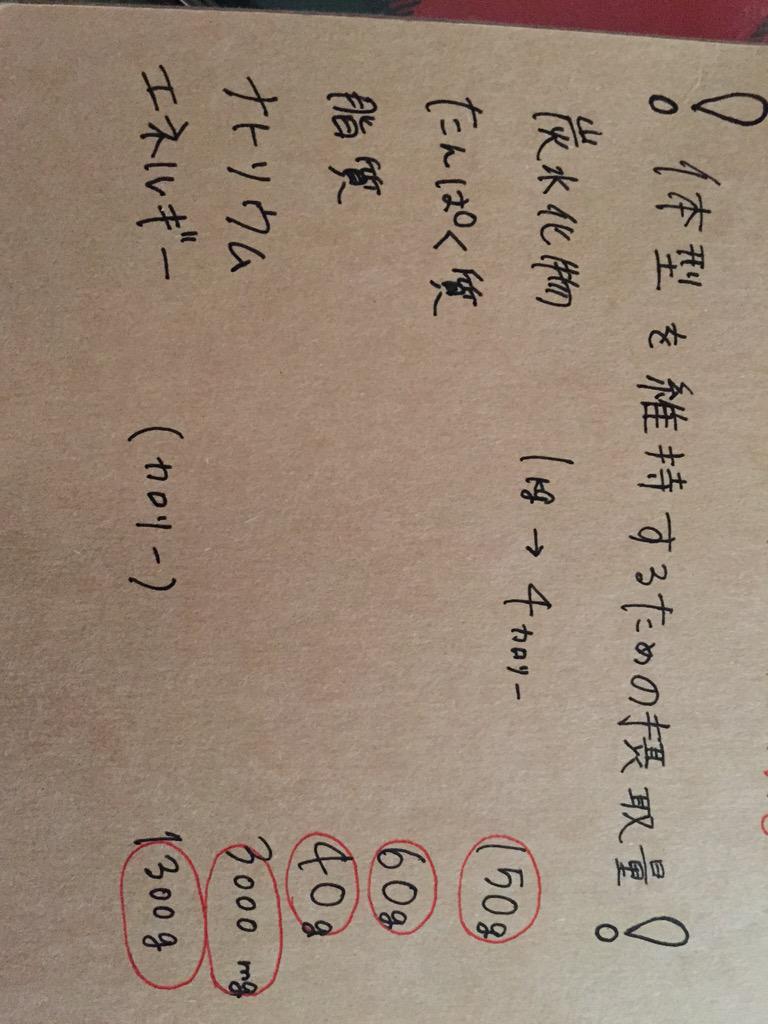 ！体型を維持するための摂取量！
炭水化物 1g→4カロリー 150g
たんぱく質 60g
脂質 40g
ナトリウム 3000mg
エネルギー (カロリー) 1300g